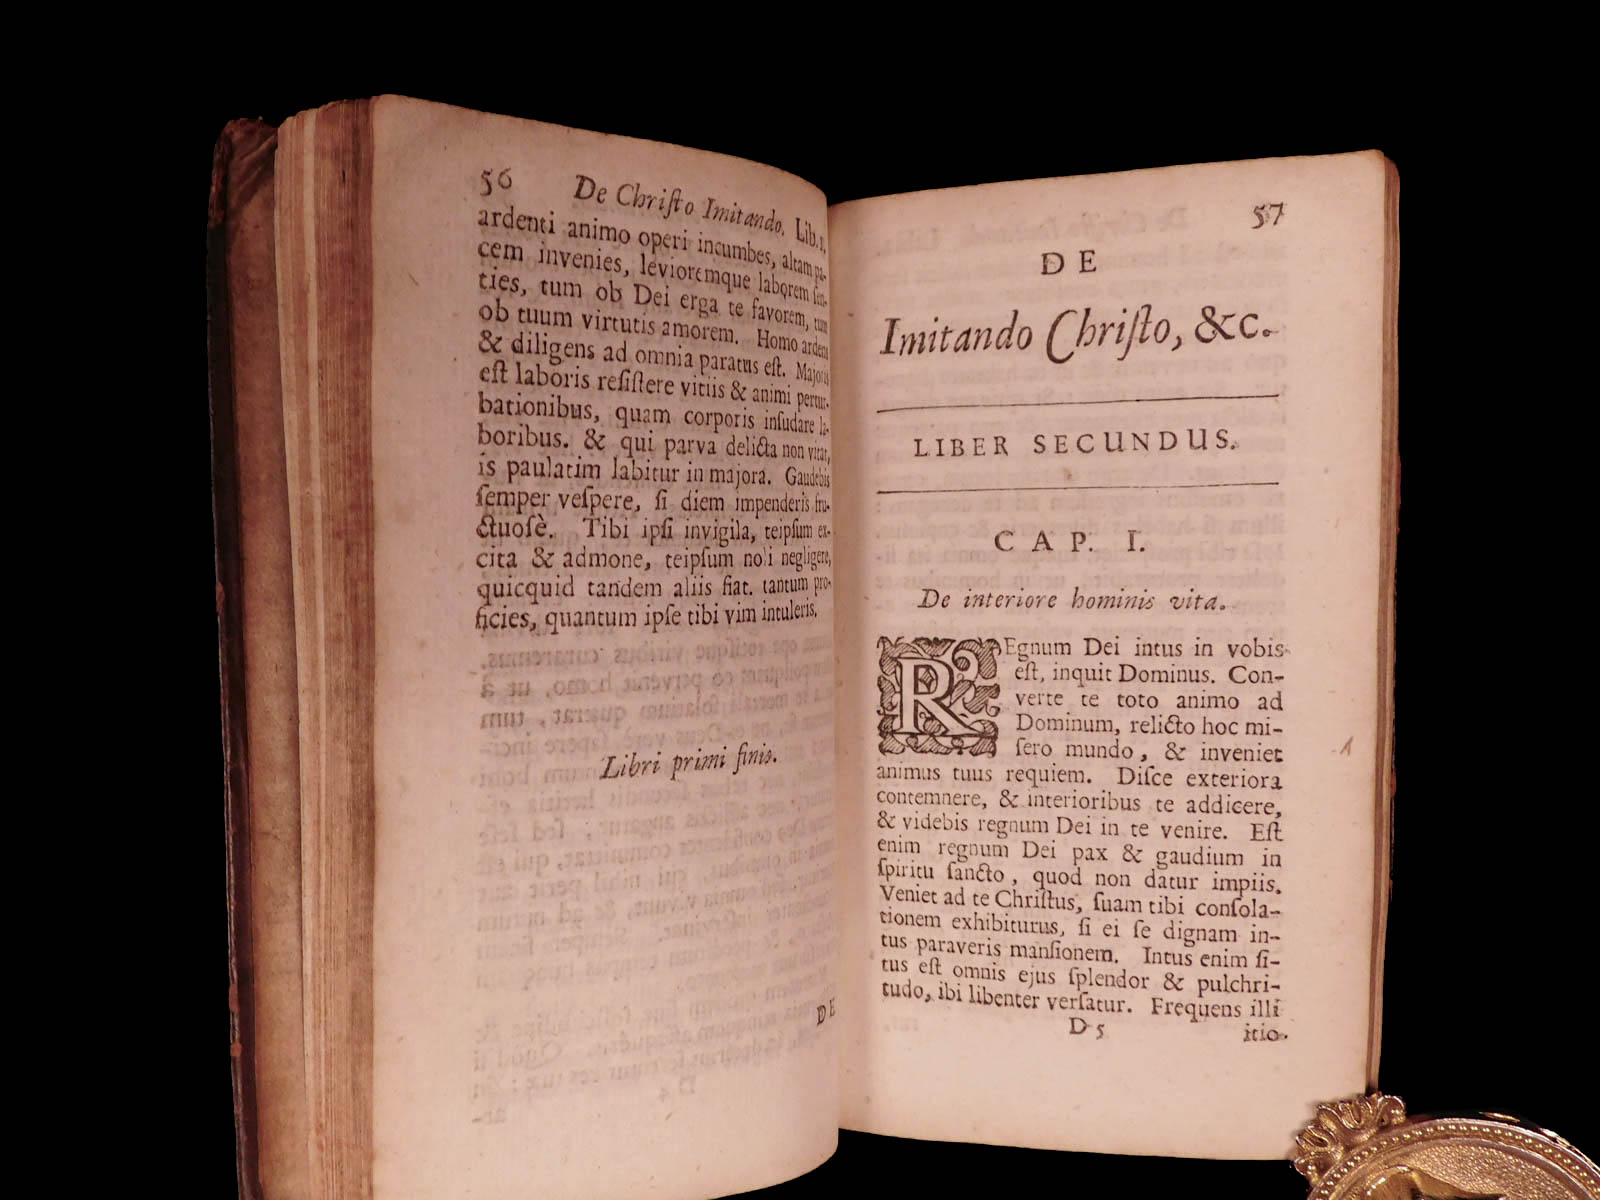 56 De Christo Imitando. Lib.1.
ardenti animo operi incumbes, altam pa-
cem invenies, levioremque laborem sen-
ties, tum ob Dei erga te favorem, tum
ob tuum virtutis amorem. Homo ardens
& diligens ad omnia paratus eſt. Majoris
eſt laboris reſiſtere vitiis & animi pertur-
bationibus, quam corporis inſudare la-
boribus. & qui parva delicta non vitat,
is paulatim labitur in majora. Gaudebis
ſemper veſpere, ſi diem impenderis fru-
ctuoſè. Tibi ipſi invigila, teipſum ex-
cita & admone, teipſum noli negligere,
quicquid tandem aliis fiat. tantum pro-
ficies, quantum ipſe tibi vim intuleris.
Libri primi finis.
DE
57
DE
Imitando Chriſto, &c.
LIBER SECUNDUS.
CAP. I.
De interiore hominis vita.
REgnum Dei intus in vobis
eſt, inquit Dominus. Con-
verte te toto animo ad
Dominum, relicto hoc mi-
ſero mundo, & inveniet
animus tuus requiem. Diſce exteriora
contemnere, & interioribus te addicere,
& videbis regnum Dei in te venire. Eſt
enim regnum Dei pax & gaudium in
ſpiritu ſancto, quod non datur impiis.
Veniet ad te Chriſtus, ſuam tibi conſola-
tionem exhibiturus, ſi ei ſe dignam in-
tus paraveris manſionem. Intus enim ſi-
tus eſt omnis ejus ſplendor & pulchri-
tudo, ibi libenter verſatur. Frequens illi
D 5 itio